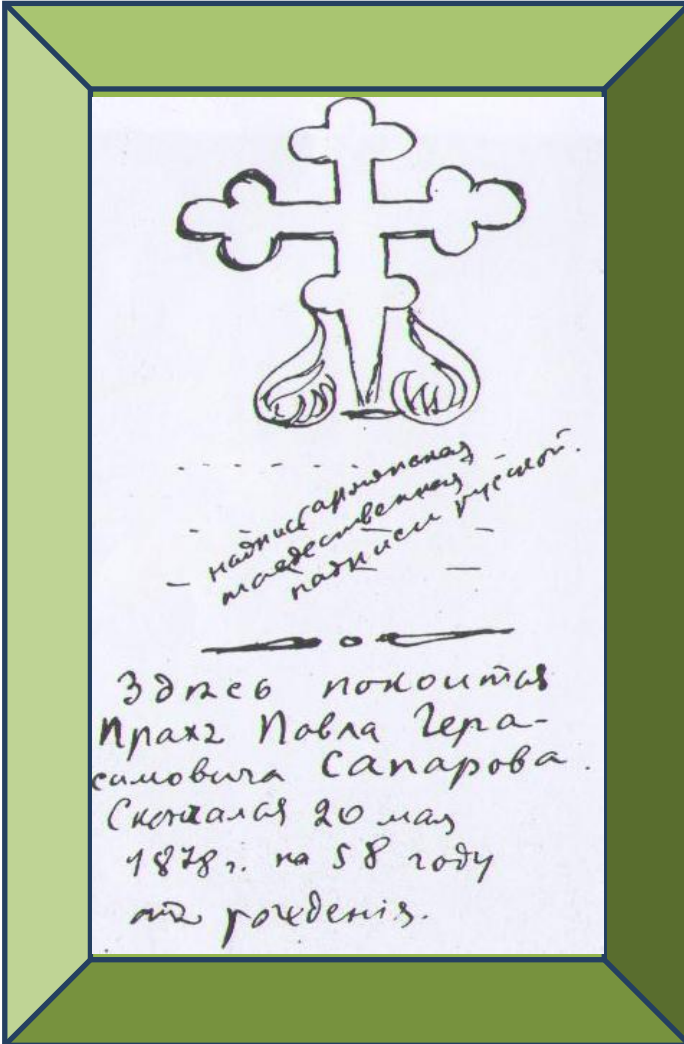 надпись армянская
тождественная
надписи русской.
Здѣсь покоится
Прахъ Павла Гера-
симовича Сапарова.
Скончался 20 мая
1878 г. на 58 году
отъ рожденія.